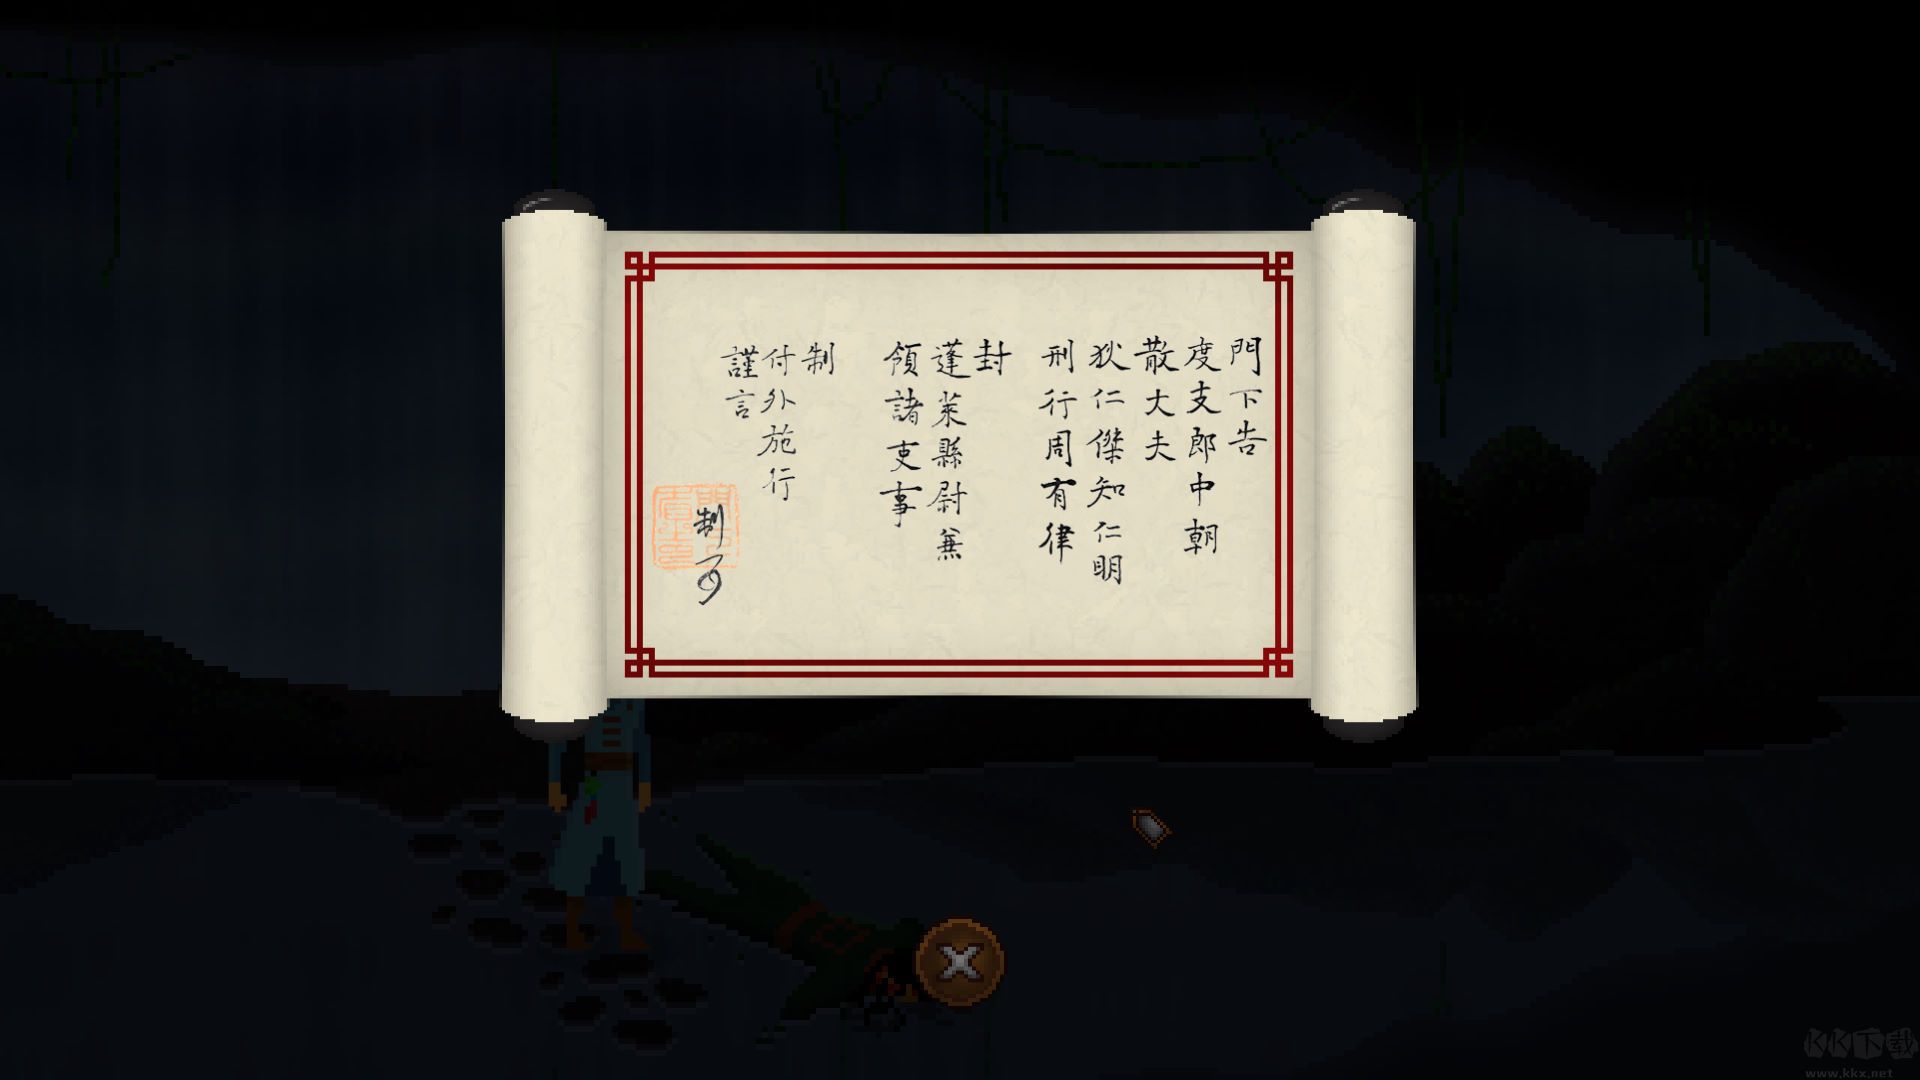 門下告
度支郎中朝
散大夫
狄仁傑知仁明
刑行周有律
封
蓬萊縣尉兼
領諸吏事
制
付外施行
謹言
制可
KK下载
www.kkx.net